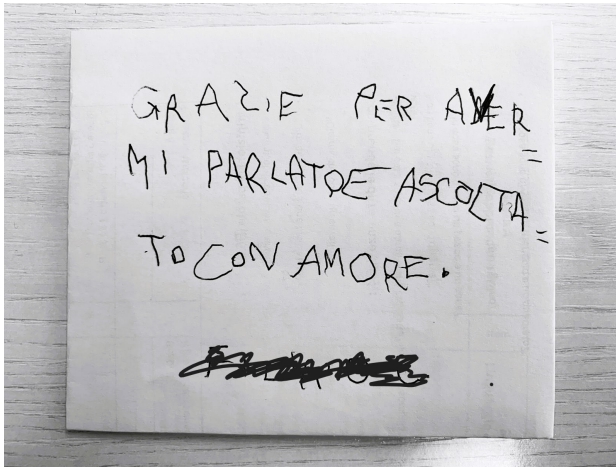 GRAZIE PER AVER=
MI PARLATO E ASCOLTA=
TO CON AMORE.